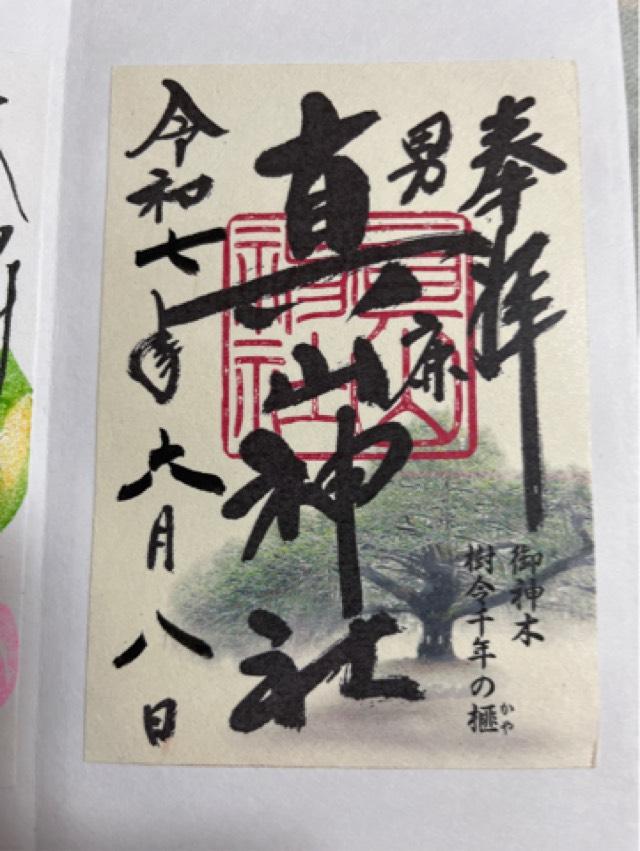 奉拝
男鹿
真山神社
令和七年六月八日
御神木
樹令千年の榧
かや